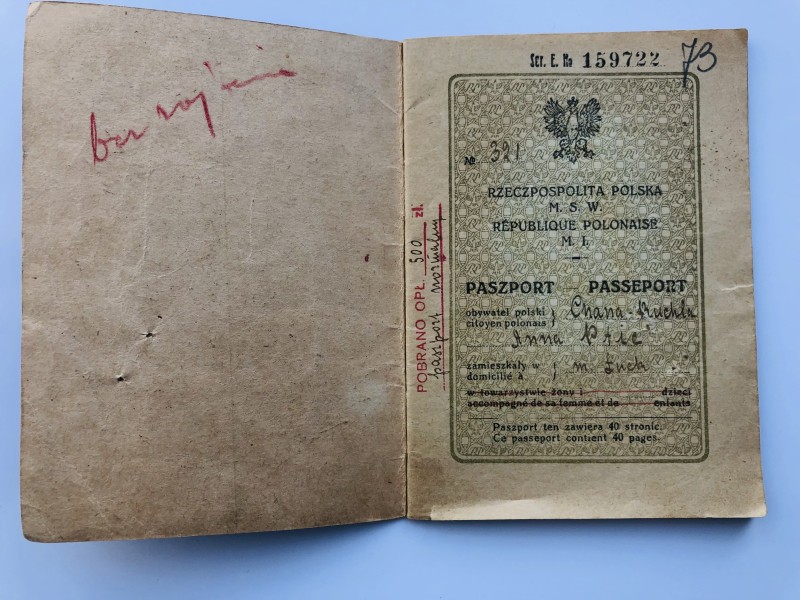 Ser. E. № 159722
73
№ 321
RZECZPOSPOLITA POLSKA
M. S. W.
RÉPUBLIQUE POLONAISE
M. I.
PASZPORT — PASSEPORT
obywatel polski
citoyen polonais
Chana-Ruchla
Anna
zamieszkały w
domicilié à
m. Łuck
w towarzystwie żony i dzieci
accompagné de sa femme et de enfants
Paszport ten zawiera 40 stronic.
Ce passeport contient 40 pages.
POBRANO OPŁ. 500 zł.
paszport normalny